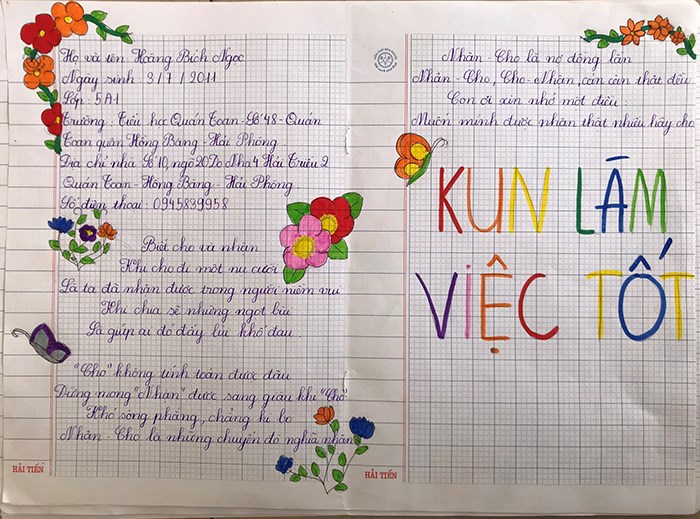 Họ và tên: Hoàng Bích Ngọc
Ngày sinh: 3/7/2011
Lớp: 5A1
Trường: Tiểu học Quán Toan - Số 48 - Quán
Toan quận Hồng Bàng - Hải Phòng.
Địa chỉ nhà Số 10, ngõ 20 Do Nha 4 Hải Triều 2
Quán Toan - Hồng Bàng - Hải Phòng.
Số điện thoại: 0945839958
Biết cho và nhận
Khi cho đi một nụ cười
Là ta đã nhận được trong người niềm vui
Khi chia sẻ những ngọt bùi
Là giúp ai đó đẩy lùi khổ đau.
"Cho" không tính toán được đâu
Đừng mong "Nhận" được sang giàu khi "Cho"
Khó sòng phẳng, chẳng ki bo
Nhận - Cho là những chuyện do nghĩa nhân
HẢI TIẾN
Nhận - Cho là nợ đồng lần
Nhận - Cho, Cho - Nhận, cán cân thật đều
Con ơi xin nhớ một điều:
Muốn mình được nhận thật nhiều hãy cho
KUN LÀM
VIỆC TỐT
HẢI TIẾN